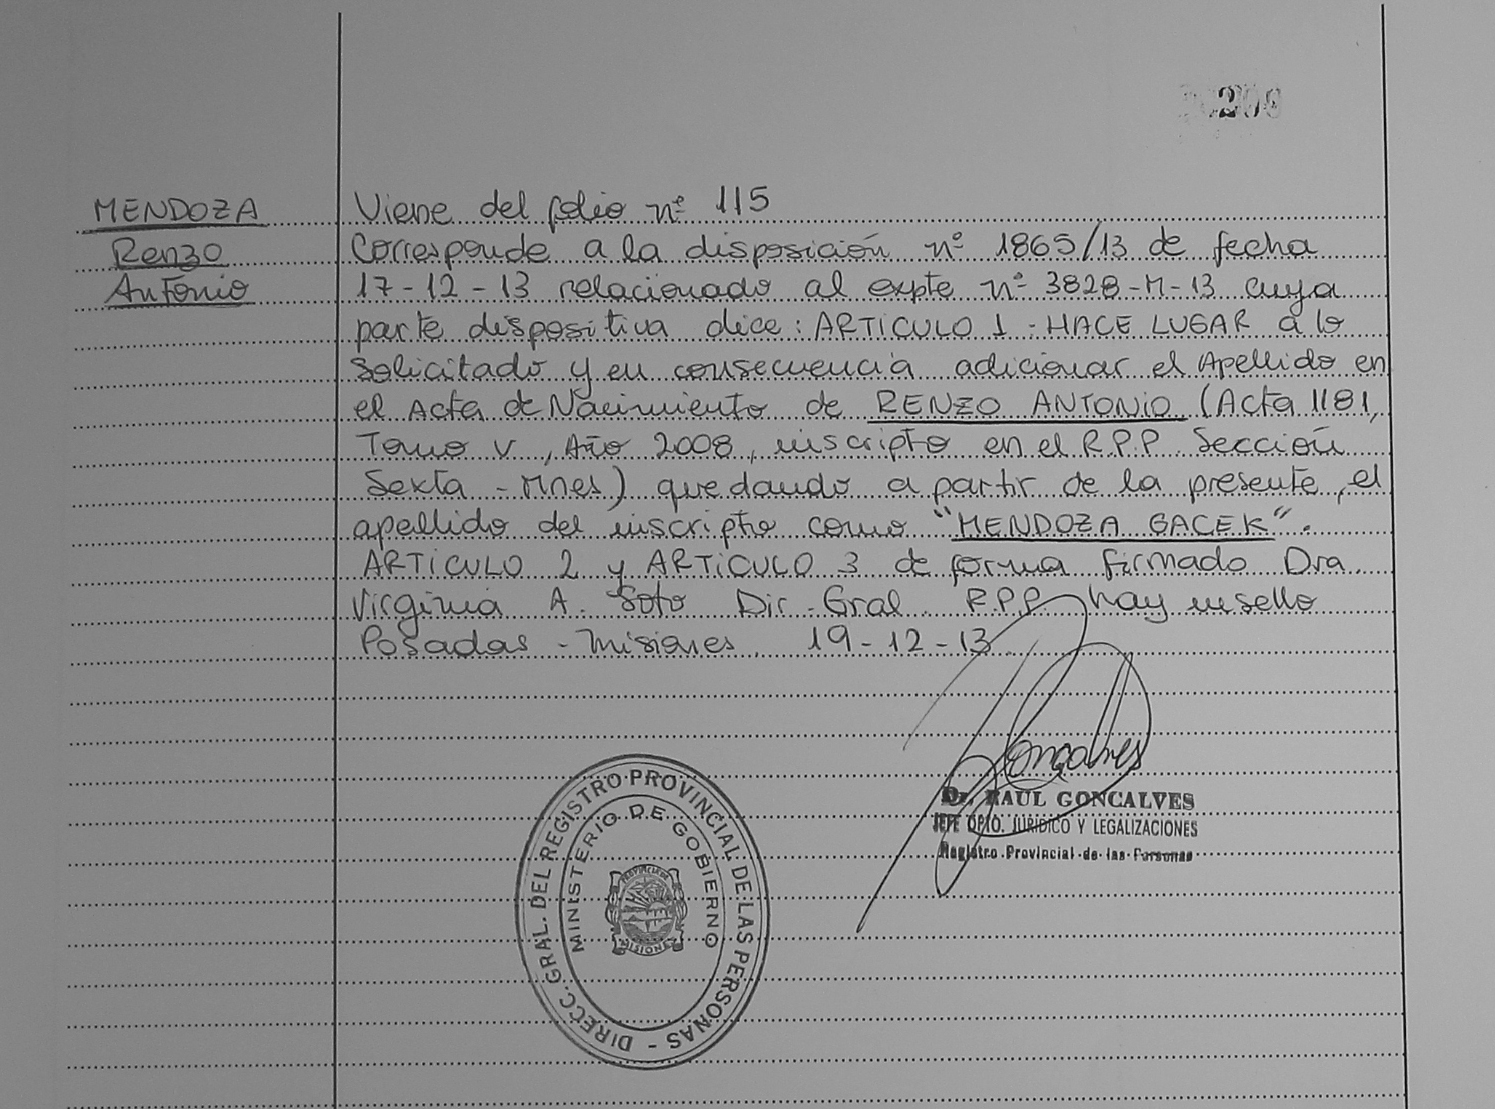 209
MENDOZA
Renzo
Antonio
Viene del folio nº 115
Corresponde a la disposición nº 1865/13 de fecha
17-12-13 relacionado al expte nº 3828-M-13 cuya
parte dispositiva dice: ARTICULO 1: HACE LUGAR a lo
solicitado y en consecuencia adicionar el Apellido en
el Acta de Nacimiento de RENZO ANTONIO (Acta 1181,
Tomo V, Año 2008, inscripto en el R.P.P. Sección
Sexta - Mnes) quedando a partir de la presente, el
apellido del inscripto como "MENDOZA GACEK".
ARTICULO 2 y ARTICULO 3 de forma firmado Dra.
Virginia A. Soto Dir. Gral. R.P.P. hay un sello
Posadas - Misiones. 19-12-13.
Goncalves
Dr. RAUL GONCALVES
JEFE DPTO. JURIDICO Y LEGALIZACIONES
Registro Provincial de las Personas
DIRECC. GRAL. DEL REGISTRO PROVINCIAL DE LAS PERSONAS -
MINISTERIO DE GOBIERNO
MISIONES